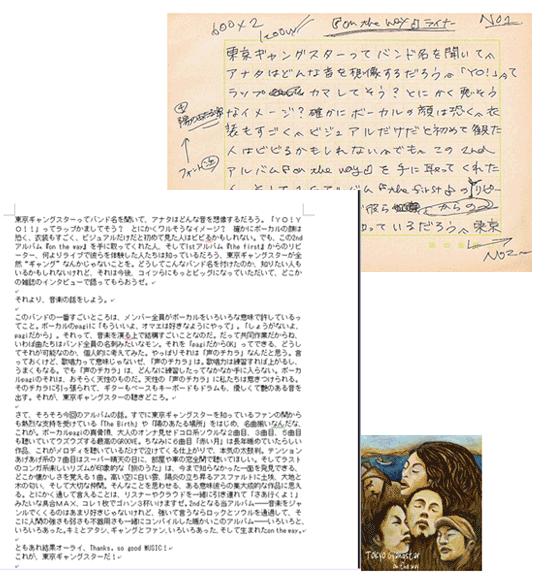 600×2
『on the way』ライナー
No1
東京ギャングスターってバンド名を聞いて、
アナタはどんな音を想像するだろう。「YO!」って
ラップ カマしてそう?とにかく恐そう
なイメージ?確かにボーカルの顔は恐く、衣
装もすごく、ビジュアルだけだと初めて観た
人はビビるかもしれない。でも、この2nd
アルバム『on the way』を手に取ってくれた
っているだろう、東京
No2
東京ギャングスターってバンド名を聞いて、アナタはどんな音を想像するだろう。「YO!YO!!」ってラップかましてそう? とにかくワルそうなイメージ? 確かにボーカルの顔は
恐く、衣装もすごく、ビジュアルだけだと初めて見た人はビビるかもしれない。でも、この2nd
アルバム『on the way』を手に取ってくれた人、そして1stアルバム『the first』からのリピ
ーター、何よりライブで彼らを体験した人たちは知っているだろう、東京ギャングスターが全
然“ギャング”なんかじゃないことを。どうしてこんなバンド名を付けたのか、知りたい人も
いるかもしれないけれど、それは今後、コイツらにもっとビッグになっていただいて、どこか
の雑誌のインタビューで語ってもらおうぜ。
それより、音楽の話をしよう。
このバンドの一番すごいところは、メンバー全員がボーカルをいろいろな意味で許しているっ
てこと。ボーカルのpagiに「もういいよ、オマエは好きなようにやって」。「しょうがないよ、
pagiだから」。それって、音楽を演る上で結構すごいことなのだ。だって共同作業だからね、
いわば曲たちはバンド全員の名刺みたいなモン。それを「pagiだからOK」ってできる、どうし
てそれが可能なのか、個人的に考えてみた。やっぱりそれは「声のチカラ」なんだと思う。言
っておくけど、歌唱力って意味じゃないぜ、「声のチカラ」は。歌唱力は練習すれば上がるし、
うまくもなる。でも「声のチカラ」は、どんなに練習したってなかなか手に入らない。ボーカ
ルpagiのそれは、おそらく天性のものだ。天性の「声のチカラ」に私たちは惹きつけられる。
そのチカラに引っ張られて、ギターもベースもキーボードもドラムも、優しくて艶のある音を
出す。それが、東京ギャングスターの聴きどころ。
さて、そろそろ今回のアルバムの話。すでに東京ギャングスターを知っているファンの間から
も熱烈な支持を受けている「The Birth」や「陽のあたる場所」をはじめ、名曲揃いなんだな、
これが。ボーカルpagiの真骨頂、大人のオンナ見せドコロ系ソウルな2曲目、3曲目、5曲目
も聴いていてウズウズする最高のGROOVE。ちなみに6曲目「赤い月」は長年暖めていたらしい
作品、これがメロディを聴いているだけで泣けてくる仕上がりで、本気の太鼓判。テンション
あげあげ系の7曲目はスーパー晴天の日に、部屋や車の窓全開で聴いてほしい。そしてラスト
のコンガ系楽しいリズムが印象的な「旅のうた」は、今まで知らなかった一面を発見できる、
どこか懐かしさを覚える1曲。高い空に白い雲、陽炎の立ち昇るアスファルトに土埃、大地と
木の匂い、そして大切な仲間。そんなことを思わせる、ある意味彼らの集大成的な作品に思え
る。とにかく通して言えることは、リスナーやクラウドを一緒に引き連れて「さあ行くよ!」
みたいな具合MAX、コレ1枚でゴハン3杯いけますぜ。2ndとなる当アルバム――音楽をジャ
ンルでくくるのはあまり好きじゃないけれど、強いて言うならロックとソウルを通過して、そ
こに人間の強さも弱さも不器用さも一緒にコンパイルした暖かいこのアルバム――いろいろと、
いろいろあった。キミとアタシ、ギャングとファン、いろいろあった、そして生まれたon the way。
ともあれ結果オーライ、Thanks, so good MUSIC!
これが、東京ギャングスターだ!
Tokyo Gangstar
on the way